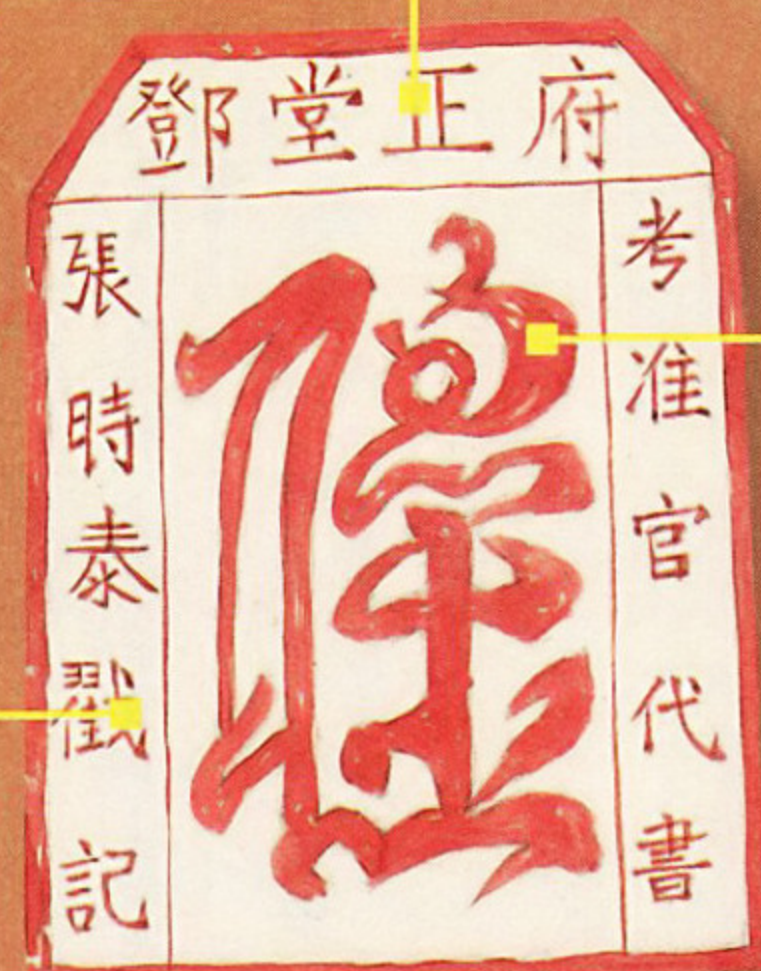 府正堂鄧
考准官代書
張時泰戳記